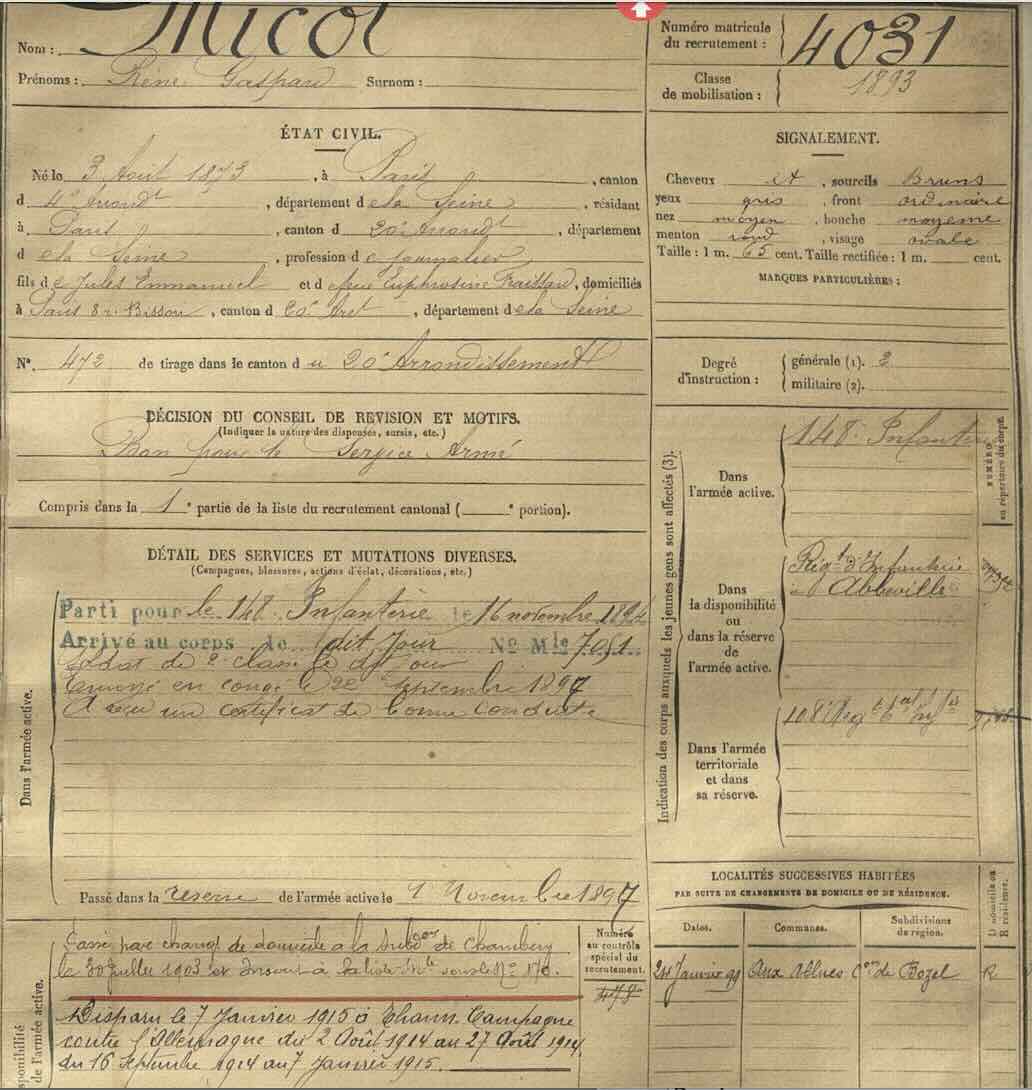 Nom : Micol
Prénoms : Réné Gaspard Surnom :
ÉTAT CIVIL.
Né le 3 Août 1873, à Paris, canton
d 4e Arrondt, département de la Seine, résidant
à Paris, canton d 20e Arrondt, département
de la Seine, profession de journalier
fils de Jules Emmanuel et d feue Euphrosine, domiciliés
à Paris 8 r. Bisson, canton d 20e Art, département de la Seine
N° 472 de tirage dans le canton du 20e Arrondissement
DÉCISION DU CONSEIL DE REVISION ET MOTIFS.
(Indiquer la nature des dispenses, sursis, etc.)
Bon pour le Service Armé
Compris dans la 1e partie de la liste du recrutement cantonal ( e portion).
DÉTAIL DES SERVICES ET MUTATIONS DIVERSES.
(Campagnes, blessures, actions d'éclat, décorations, etc.)
Dans l'armée active.
Parti pour le 148e Infanterie le 16 novembre 1894
Arrivé au corps le dit jour N° Mle 7051
Soldat de 2e classe le dit jour
Envoyé en congé le 22 septembre 1897
A reçu un certificat de bonne conduite
Passé dans la réserve de l'armée active le 1 Novembre 1897
Passé par changt de domicile à la subdon de Chambéry
le 30 Juillet 1903 et Inscrit à la liste sous le N° 170.
Numéro
au contrôle
spécial du
recrutement.
478
Disparu le 7 Janvier 1915 à Thann. Campagne
contre l'Allemagne du 2 Août 1914 au 27 Août 1914
du 16 Septembre 1914 au 7 Janvier 1915.
sponibilité
de l'armée active.
Numéro matricule
du recrutement : 4031
Classe
de mobilisation : 1893
SIGNALEMENT.
Cheveux et, sourcils Bruns
yeux gris, front ordinaire
nez moyen, bouche moyenne
menton rond, visage ovale
Taille : 1 m. 65 cent. Taille rectifiée : 1 m. cent.
MARQUES PARTICULIÈRES :
Degré
d'instruction :
générale (1). 3
militaire (2).
Indication des corps auxquels les jeunes gens sont affectés (3).
NUMÉRO
au répertoire du corps.
Dans
l'armée active.
148e Infanterie
Dans
la disponibilité
ou
dans la réserve
de
l'armée active.
Rigt d'Infanterie
à Abbeville
Dans l'armée
territoriale
et dans
sa réserve.
108e Regt
LOCALITÉS SUCCESSIVES HABITÉES
PAR SUITE DE CHANGEMENTS DE DOMICILE OU DE RÉSIDENCE.
Dates. Communes. Subdivisions
de région.
D domicile ou
R résidence.
24 Janvier 99 Aux Allues Con de Bozel R